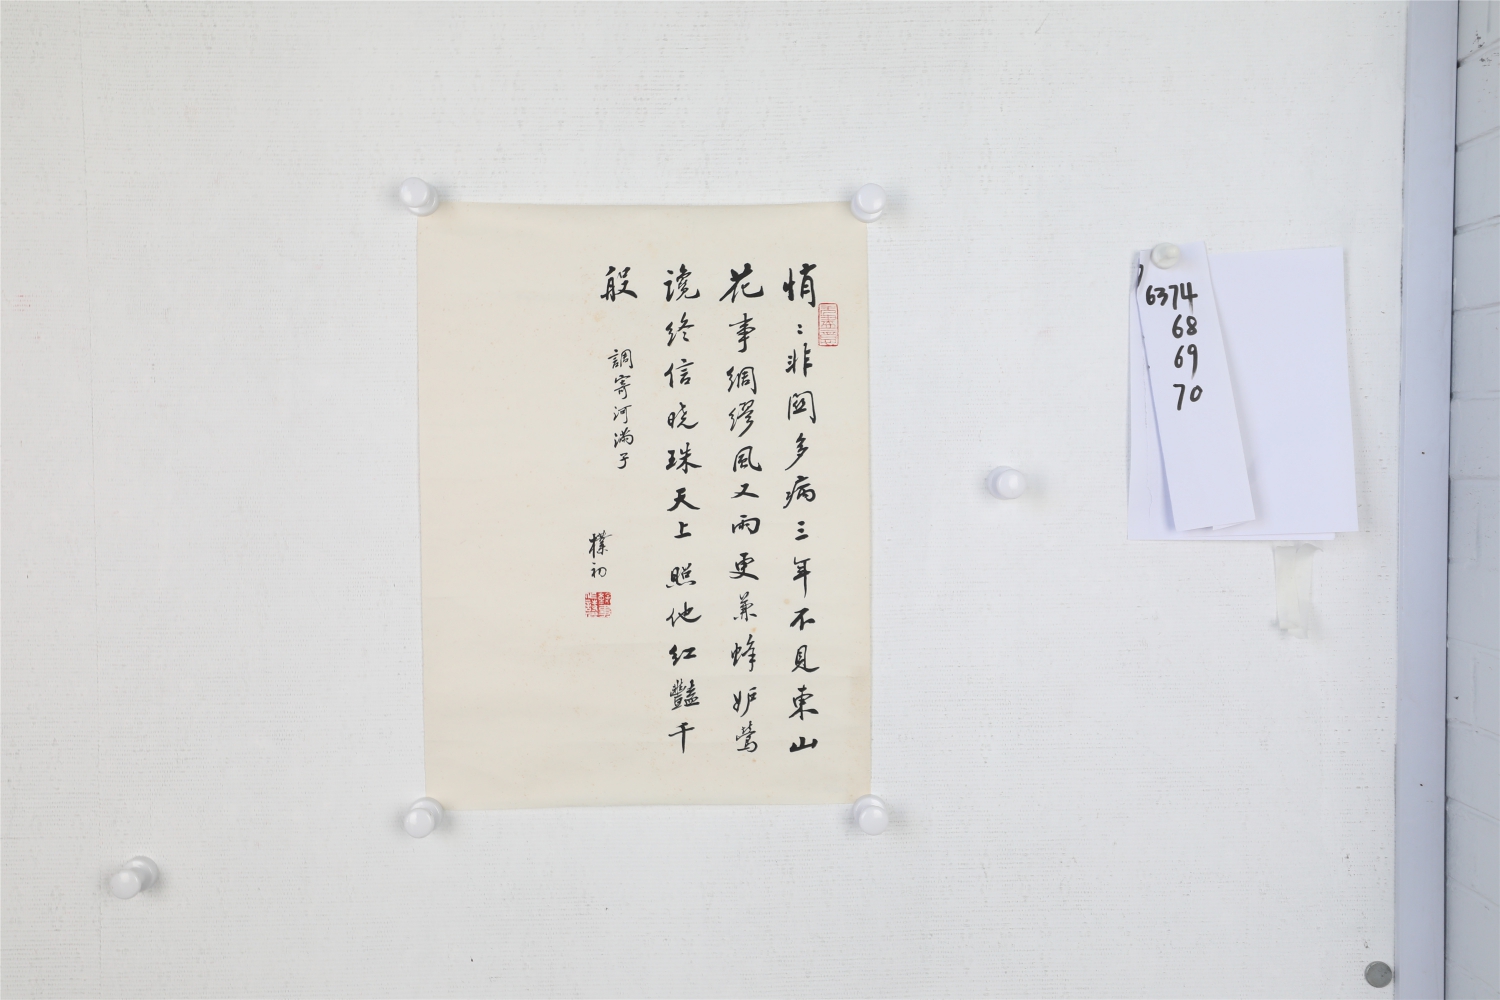 悄〻非關多病三年不見東山
花事綢繆風又雨更兼蜂妒鶯
讒終信曉珠天上照他紅豔千
般
調寄河滿子
樸初
6374
68
69
70